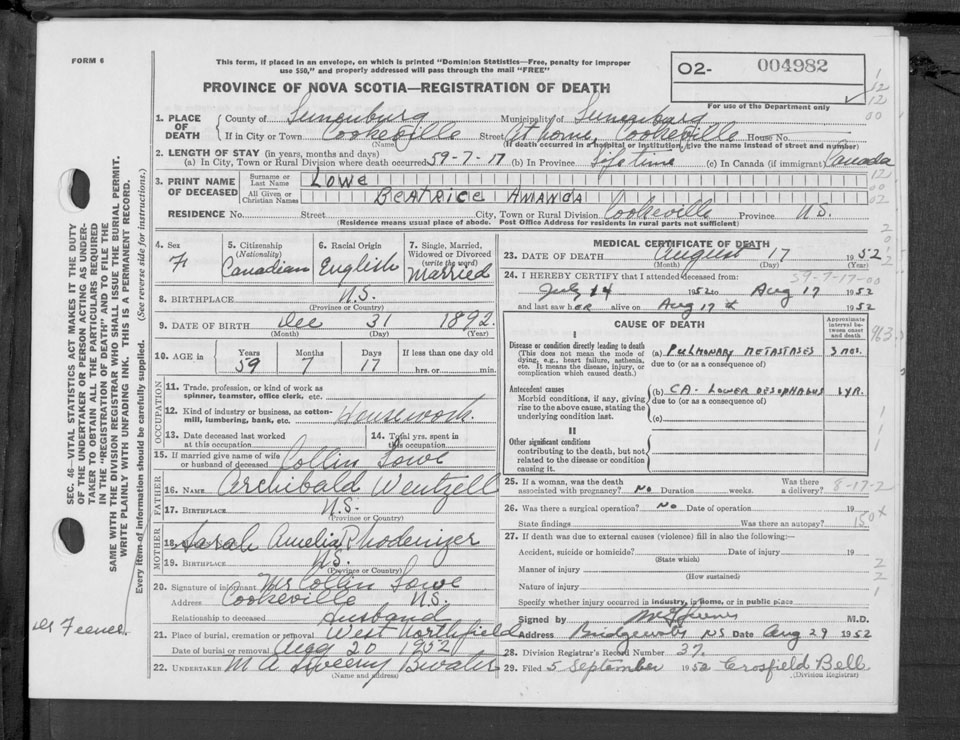 FORM 6
This form, if placed in an envelope, on which is printed "Dominion Statistics—Free, penalty for improper
use 550," and properly addressed will pass through the mail "FREE"
PROVINCE OF NOVA SCOTIA—REGISTRATION OF DEATH
O2- 004982
For use of the Department only
1. PLACE OF DEATH
County of Lunenburg Municipality of Lunenburg
If in City or Town Cookeville Street At home, Cookeville House No.
(Name) (If death occurred in a hospital or institution, give the name instead of street and number)
2. LENGTH OF STAY (in years, months and days)
(a) In City, Town or Rural Division where death occurred 59-7-17 (b) In Province Life time (c) In Canada (if immigrant) Canada
3. PRINT NAME OF DECEASED
Surname or Last Name LOWE
All Given or Christian Names BEATRICE AMANDA
RESIDENCE No. Street City, Town or Rural Division Cookeville Province N.S.
(Residence means usual place of abode. Post Office Address for residents in rural parts not sufficient)
4. Sex F
5. Citizenship (Nationality) Canadian
6. Racial Origin English
7. Single, Married, Widowed or Divorced (write the word) Married
8. BIRTHPLACE N.S.
(Province or Country)
9. DATE OF BIRTH Dec 31 1892
(Month) (Day) (Year)
10. AGE in Years 59 Months 7 Days 17 If less than one day old hrs. or min.
OCCUPATION
11. Trade, profession, or kind of work as spinner, teamster, office clerk, etc.
12. Kind of industry or business, as cotton-mill, lumbering, bank, etc. Housework
13. Date deceased last worked at this occupation
14. Total yrs. spent in this occupation
15. If married give name of wife or husband of deceased Collin Lowe
FATHER
16. NAME Archibald Wentzell
17. BIRTHPLACE N.S.
(Province or Country)
MOTHER
18. Sarah Amelia Rhodenizer
19. BIRTHPLACE N.S.
(Province or Country)
20. Signature of informant Mr Collin Lowe
Address Cookeville N.S.
Relationship to deceased Husband
21. Place of burial, cremation or removal West Northfield
Date of burial or removal Aug 20 1952
22. UNDERTAKER M A Sweeny Bwater
(Name and address)
MEDICAL CERTIFICATE OF DEATH
23. DATE OF DEATH August 17 1952
(Month) (Day) (Year)
59-7-17-00
24. I HEREBY CERTIFY that I attended deceased from:
July 14 1952 to Aug 17 1952
and last saw her alive on Aug 17th 1952
CAUSE OF DEATH
Approximate interval between onset and death
I
Disease or condition directly leading to death
(This does not mean the mode of dying, e.g., heart failure, asthenia, etc. It means the disease, injury, or complication which caused death.)
(a) PULMONARY METASTASES 3 mos.
due to (or as a consequence of)
Antecedent causes
Morbid conditions, if any, giving rise to the above cause, stating the underlying condition last.
(b) CA. LOWER OESOPHAGUS 1 YR.
due to (or as a consequence of)
(c)
II
Other significant conditions
contributing to the death, but not related to the disease or condition causing it.
25. If a woman, was the death associated with pregnancy? No Duration weeks. Was there a delivery?
8-17-2
26. Was there a surgical operation? No Date of operation 19
State findings Was there an autopsy?
27. If death was due to external causes (violence) fill in also the following:—
Accident, suicide or homicide? Date of injury 19
(State which)
Manner of injury
(How sustained)
Nature of injury
Specify whether injury occurred in industry, in home, or in public place
Signed by M.D.
Address Bridgewater NS Date Aug 29 1952
28. Division Registrar's Record Number 37.
29. Filed 5 September 1952 Crosfield Bell
(Division Registrar)
SEC. 46—VITAL STATISTICS ACT MAKES IT THE DUTY
OF THE UNDERTAKER OR PERSON ACTING AS UNDER-
TAKER TO OBTAIN ALL THE PARTICULARS REQUIRED
IN THE "REGISTRATION OF DEATH" AND TO FILE THE
SAME WITH THE DIVISION REGISTRAR WHO SHALL ISSUE THE BURIAL PERMIT.
WRITE PLAINLY WITH UNFADING INK. THIS IS A PERMANENT RECORD.
Every item of information should be carefully supplied. (See reverse side for instructions.)